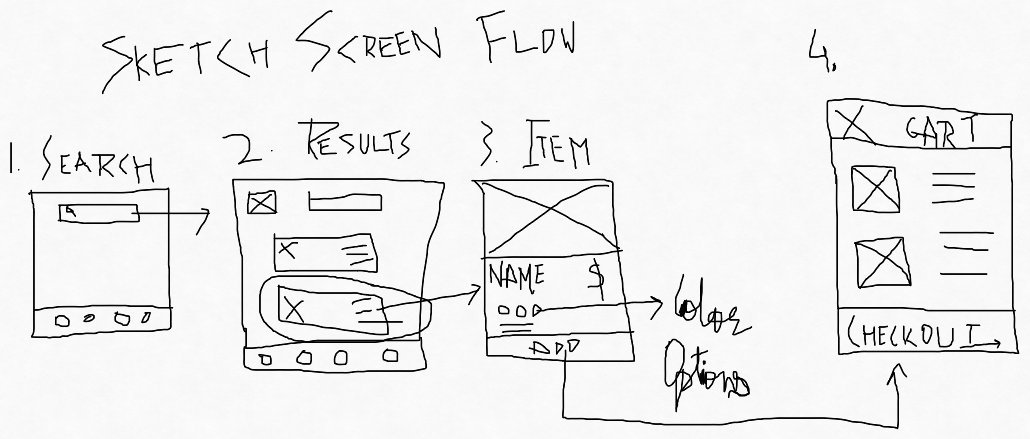 SKETCH SCREEN FLOW
4.
1. SEARCH
2. RESULTS
3. ITEM
CART
NAME $
Color
Options
ADD
CHECKOUT